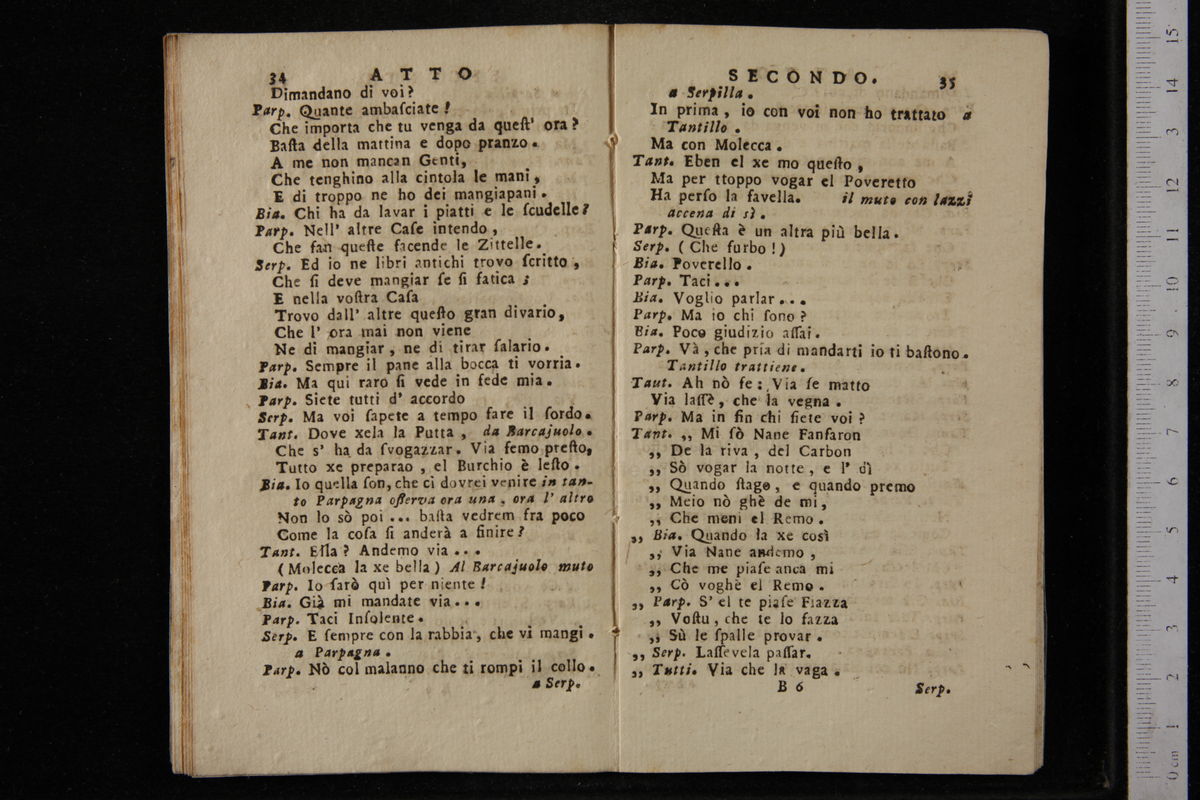 34 ATTO
Dimandano di voi?
Parp. Quante ambaſciate!
Che importa che tu venga da queſt' ora?
Baſta della mattina e dopo pranzo.
A me non mancan Genti,
Che tenghino alla cintola le mani,
E di troppo ne ho dei mangiapani.
Bia. Chi ha da lavar i piatti e le ſcudelle?
Parp. Nell' altre Caſe intendo,
Che fan queſte facende le Zittelle.
Serp. Ed io ne libri antichi trovo ſcritto,
Che ſi deve mangiar ſe ſi fatica;
E nella voſtra Caſa
Trovo dall' altre queſto gran divario,
Che l' ora mai non viene
Ne di mangiar, ne di tirar ſalario.
Parp. Sempre il pane alla bocca ti vorria.
Bia. Ma qui raro ſi vede in fede mia.
Parp. Siete tutti d' accordo
Serp. Ma voi ſapete a tempo fare il ſordo.
Tant. Dove xela la Putta, da Barcajuolo.
Che s' ha da ſvogazzar. Via ſemo preſto,
Tutto xe preparao, el Burchio è leſto.
Bia. Io quella ſon, che ci dovrei venire in tan-
to Parpagna oſſerva ora una, ora l' altro
Non lo sò poi ... baſta vedrem fra poco
Come la coſa ſi anderà a finire?
Tant. Ella? Andemo via...
(Molecca la xe bella) Al Barcajuolo muto
Parp. Io ſarò quì per niente!
Bia. Già mi mandate via...
Parp. Taci Inſolente.
Serp. E ſempre con la rabbia, che vi mangi.
a Parpagna.
Parp. Nò col malanno che ti rompi il collo.
a Serp.
SECONDO. 35
a Serpilla.
In prima, io con voi non ho trattato a
Tantillo.
Ma con Molecca.
Tant. Eben el xe mo queſto,
Ma per ttoppo vogar el Poveretto
Ha perſo la favella. il muto con lazzi
accena di sì.
Parp. Queſta è un altra più bella.
Serp. (Che furbo!)
Bia. Poverello.
Parp. Taci...
Bia. Voglio parlar...
Parp. Ma io chi ſono?
Bia. Poco giudizio aſſai.
Parp. Và, che pria di mandarti io ti baſtono.
Tantillo trattiene.
Taut. Ah nò ſe: Via ſe matto
Via laſſè, che la vegna.
Parp. Ma in fin chi ſiete voi?
Tant. ,, Mi ſò Nane Fanfaron
,, De la riva, del Carbon
,, Sò vogar la notte, e l' dì
,, Quando ſtago, e quando premo
,, Meio nò ghè de mi,
,, Che meni el Remo.
,, Bia. Quando la xe così
,, Via Nane andemo,
,, Che me piaſe anca mi
,, Cò voghè el Remo.
,, Parp. S' el te piaſe Fiazza
,, Voſtu, che te lo fazza
,, Sù le ſpalle provar.
,, Serp. Laſſevela paſſar.
,, Tutti. Via che la vaga.
B 6 Serp.
0 cm 1 2 3 4 5 6 7 8 9 10 11 12 3 14 15